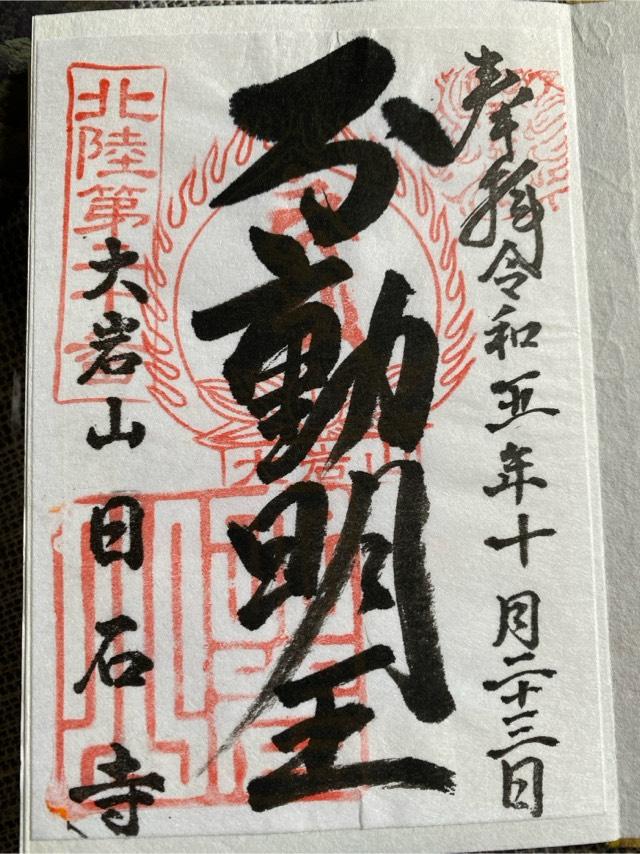 奉拝 令和五年十月二十三日
不動明王
大岩山
北陸第
大岩山 日石寺